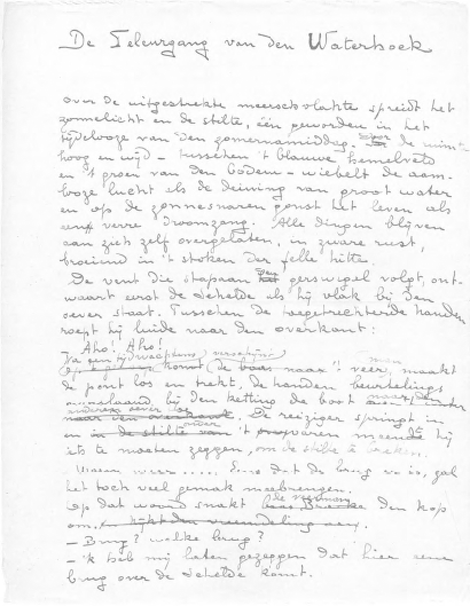 De Teleurgang van den Waterhoek
Over de uitgestrekte meerschvlakte spreidt het
zonnelicht en de stilte, één geworden in het
tijdelooze van den zomernamiddag. Door de ruimte
hoog en wijd – tusschen 't blauwe hemelveld
en 't groen van den bodem – wiebelt de aam-
looze lucht als de deining van groot water
en op de zonnesnaren gonst het leven als
verre droomzang. Alle dingen blijven
aan zich zelf overgelaten, in zware rust,
broeiend in 't stoken der felle hitte.
De vent die stapaan den gerswegel volgt, ont-
waart eerst de Schelde als hij vlak bij den
oever staat. Tusschen de toegetrechterde handen
roept hij luide naar den overkant:
Aho! Aho!
komt de baas naar 't veer, maakt
de pont los en trekt. De handen beurtelings
bij den ketting de boot
De reiziger springt in
en in de stilte van 't varen meende hij
iets te moeten zeggen, om de stilte te breken.
Warm weer..... Eens dat de brug er is, zal
het toch veel gemak meebrengen.
Op dat woord snakt de veerman den kop
om.
– Brug? welke brug?
– 'k heb mij laten gezeggen dat hier eene
brug over de Schelde komt.